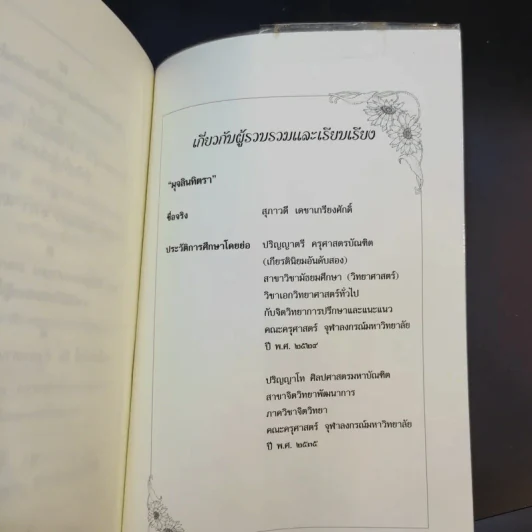 เกี่ยวกับผู้รวบรวมและเรียบเรียง
"ผุจลินทิตรา"
ชื่อจริง สุภาวดี เดชาเกรียงศักดิ์
ประวัติการศึกษาโดยย่อ ปริญญาตรี ครุศาสตรบัณฑิต
(เกียรตินิยมอันดับสอง)
สาขาวิชามัธยมศึกษา (วิทยาศาสตร์)
วิชาเอกวิทยาศาสตร์ทั่วไป
กับจิตวิทยาการปรึกษาและแนะแนว
คณะครุศาสตร์ จุฬาลงกรณ์มหาวิทยาลัย
ปี พ.ศ. ๒๕๒๙
ปริญญาโท ศิลปศาสตรมหาบัณฑิต
สาขาจิตวิทยาพัฒนาการ
ภาควิชาจิตวิทยา
คณะครุศาสตร์ จุฬาลงกรณ์มหาวิทยาลัย
ปี พ.ศ. ๒๕๓๕